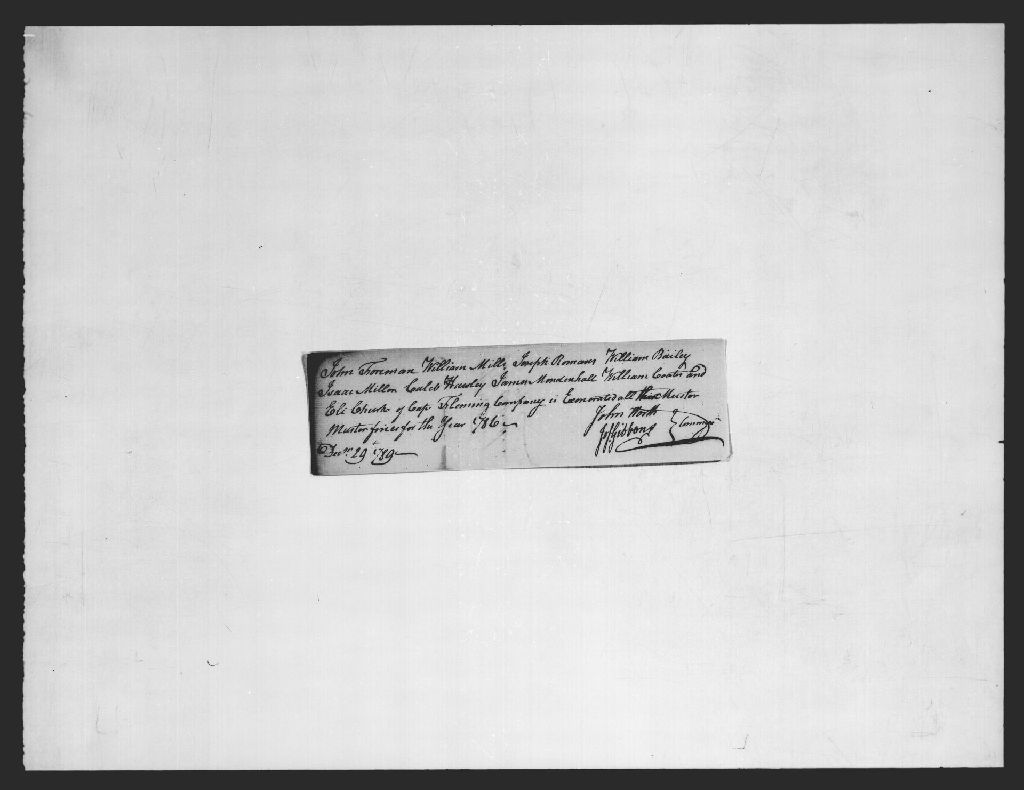 John Foreman William Mills Joseph Romans William Bailey
Isaac Miller Caleb Hawley James Mendenhall William Coats and
Eli Chusk of Cap Fleming Company is Exonerated all their Muster
Muster fines for the Year 1786
John Worth
Js Gibbons
Decmr 29 1789